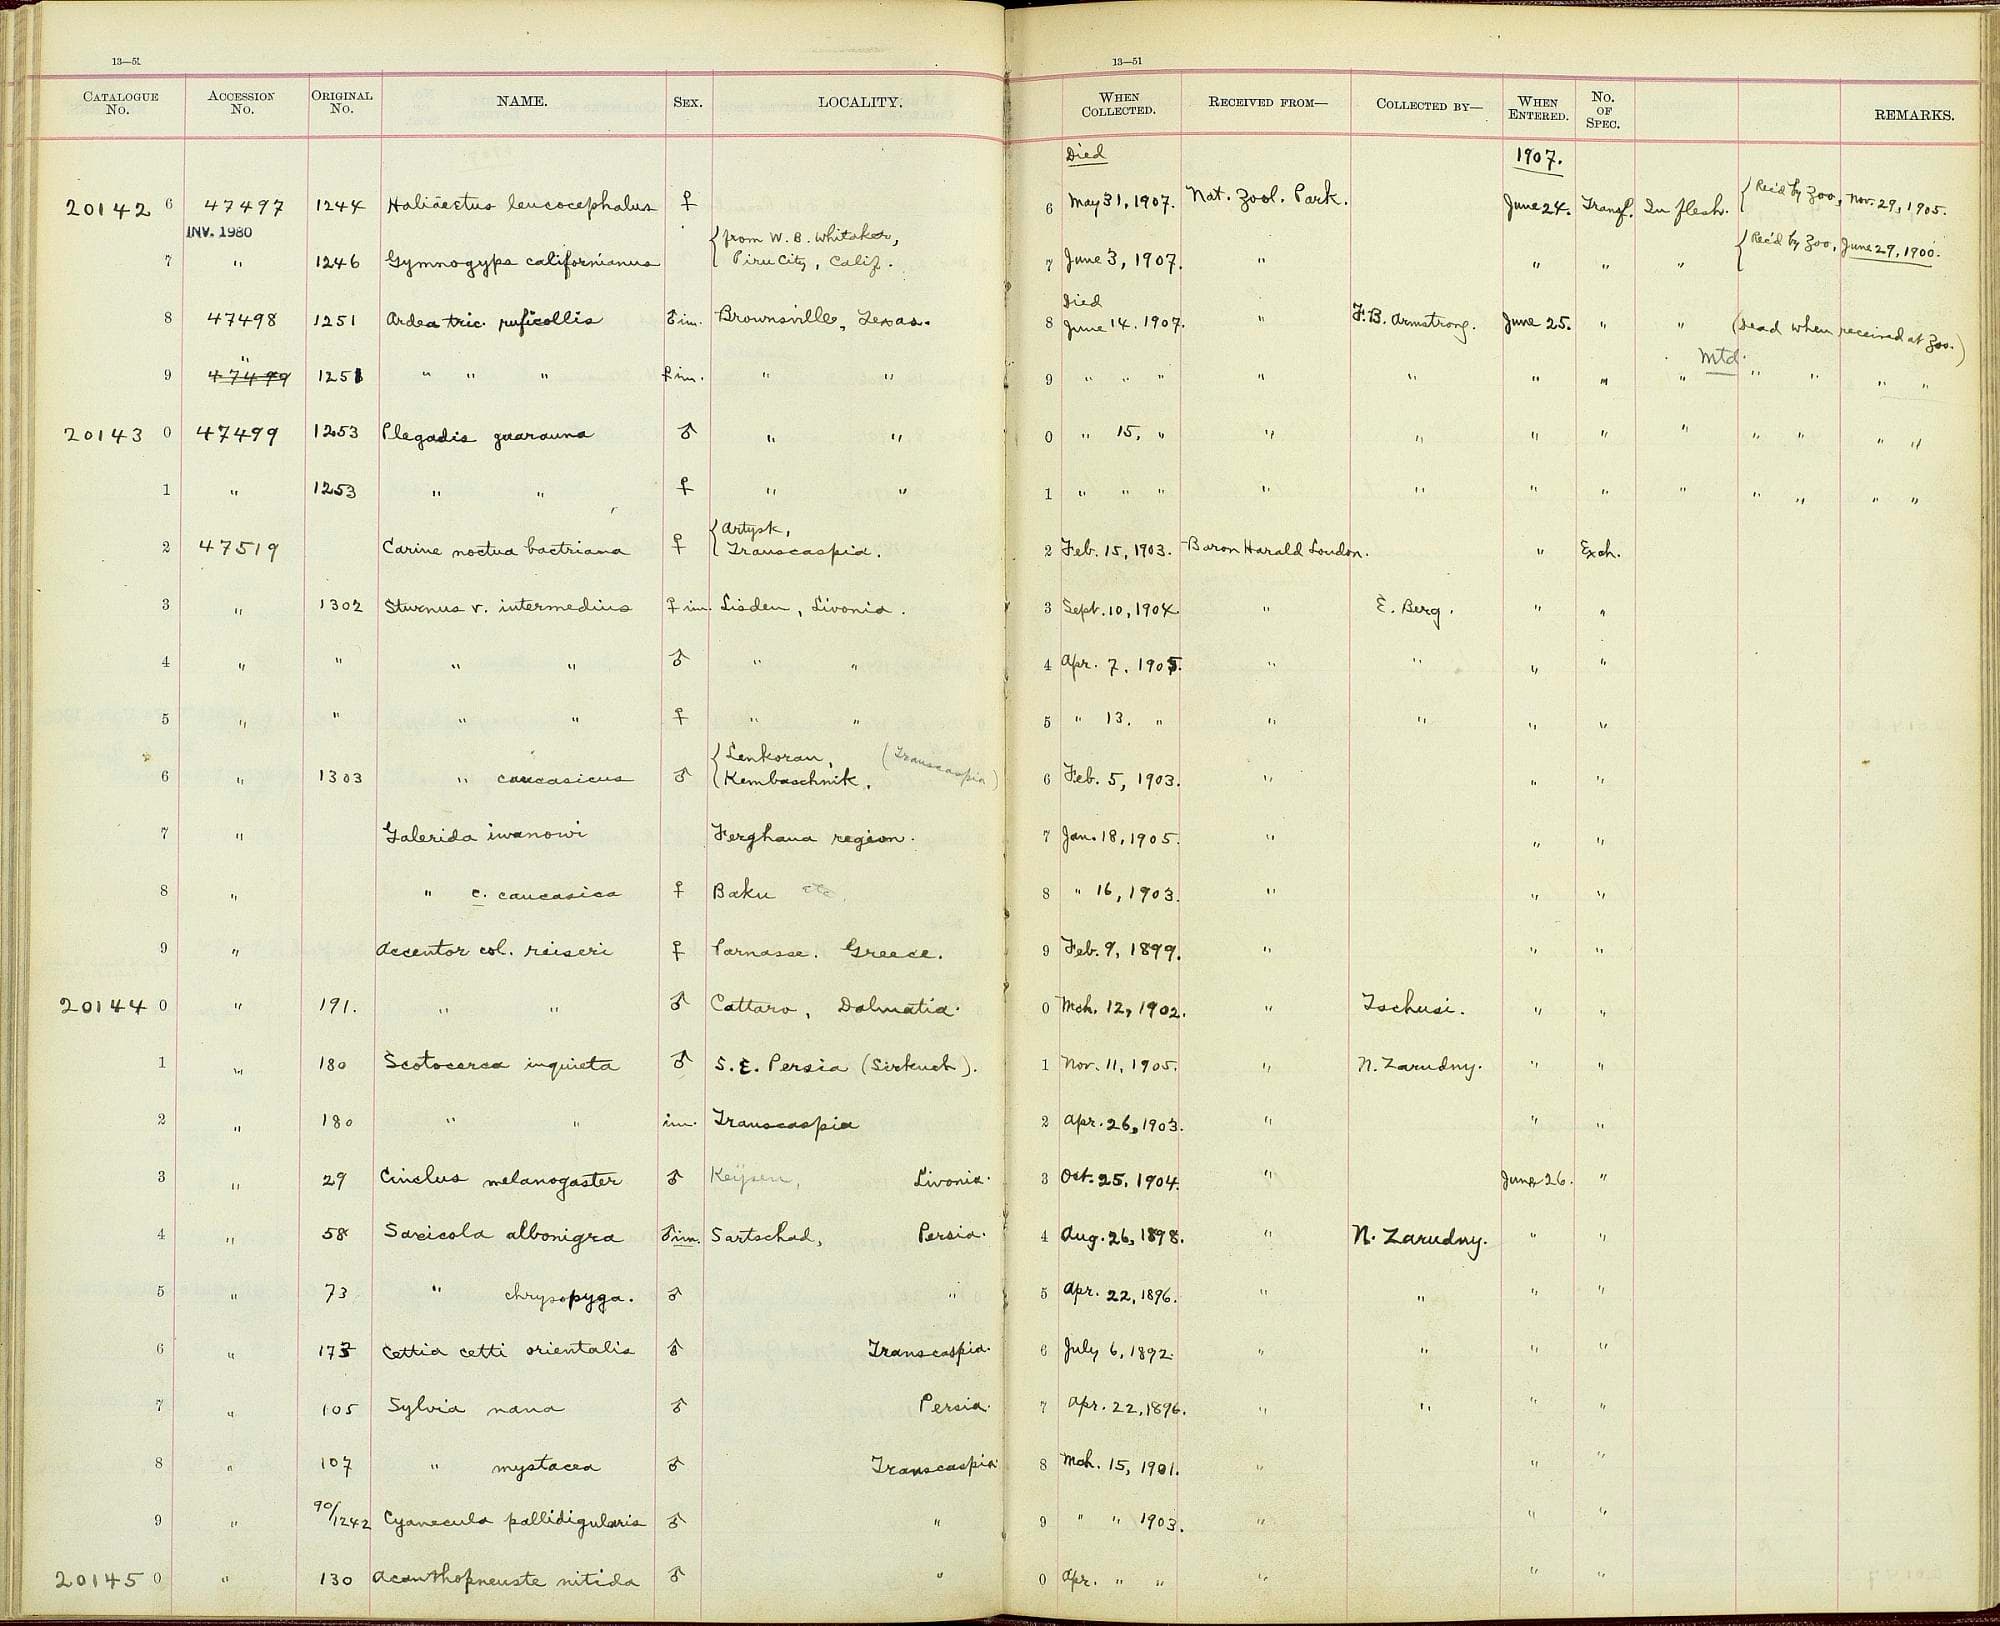 13—51
CATALOGUE No. ACCESSION No. ORIGINAL No. NAME. SEX. LOCALITY.
20142 6 47497 1244 Haliäetus leucocephalus ♀
INV. 1980
7 " 1246 Gymnogyps californianus {from W. B. Whitaker, Piru City, Calif.
8 47498 1251 Ardea tric. ruficollis ♂ im. Brownsville, Texas.
9 " 47499 1251 " " " ♀ im. " "
20143 0 47499 1253 Plegadis guarauna ♂ " "
1 " 1253 " " ♀ " "
2 47519 Carine noctua bactriana ♀ {Artysk, Transcaspia.
3 " 1302 Sturnus v. intermedius ♀ im. Lisden, Livonia.
4 " " " " ♂ " "
5 " " " " ♀ " "
6 " 1303 " caucasicus ♂ {Lenkoran, Kembaschnik. (Transcaspia)
7 " Galerida iwanowi Ferghana region.
8 " " c. caucasica ♀ Baku etc.
9 " Accentor col. reiseri ♀ Parnasse. Greece.
20144 0 " 191. " " ♂ Cattaro, Dalmatia.
1 " 180 Scotocerca inquieta ♂ S.E. Persia (Sirkuch).
2 " 180 " " im. Transcaspia
3 " 29 Cinclus melanogaster ♂ Keysen, Livonia.
4 " 58 Saxicola albonigra ♂ im. Sartschad, Persia.
5 " 73 " chrysopyga. ♂ "
6 " 173 Cettia cetti orientalis ♂ Transcaspia.
7 " 105 Sylvia nana ♂ Persia.
8 " 107 " mystacea ♂ Transcaspia
9 " 90/1242 Cyanecula pallidigularis ♂ "
20145 0 " 130 Acanthopneuste nitida ♂ "
13—51
WHEN COLLECTED. RECEIVED FROM— COLLECTED BY— WHEN ENTERED. No. OF SPEC. REMARKS.
Died 1907.
6 May 31, 1907. Nat. Zool. Park. June 24. Transf. In flesh. {Rec'd by Zoo, Nov. 29, 1905.
7 June 3, 1907. " " " " {Rec'd by Zoo, June 29, 1900.
Died
8 June 14. 1907. " F. B. Armstrong. June 25. " " (Dead when received at Zoo.)
Mtd.
9 " " " " " " " " " " " "
0 " 15, " " " " " " " " " "
1 " " " " " " " " " " " "
2 Feb. 15, 1903. Baron Harald Loudon. " Exch.
3 Sept. 10, 1904. " E. Berg. " "
4 Apr. 7. 1905. " " " "
5 " 13. " " " " "
6 Feb. 5, 1903. " " "
7 Jan. 18, 1905. " " "
8 " 16, 1903. " " "
9 Feb. 9, 1899. " " "
0 Mch. 12, 1902. " Tschusi. " "
1 Nov. 11, 1905. " N. Zarudny. " "
2 Apr. 26, 1903. " " "
3 Oct. 25, 1904. " June 26. "
4 Aug. 26, 1898. " N. Zarudny. " "
5 Apr. 22, 1896. " " " "
6 July 6, 1892. " " " "
7 Apr. 22, 1896. " " " "
8 Mch. 15, 1901. " " "
9 " " 1903. " " "
0 Apr. " " " " "